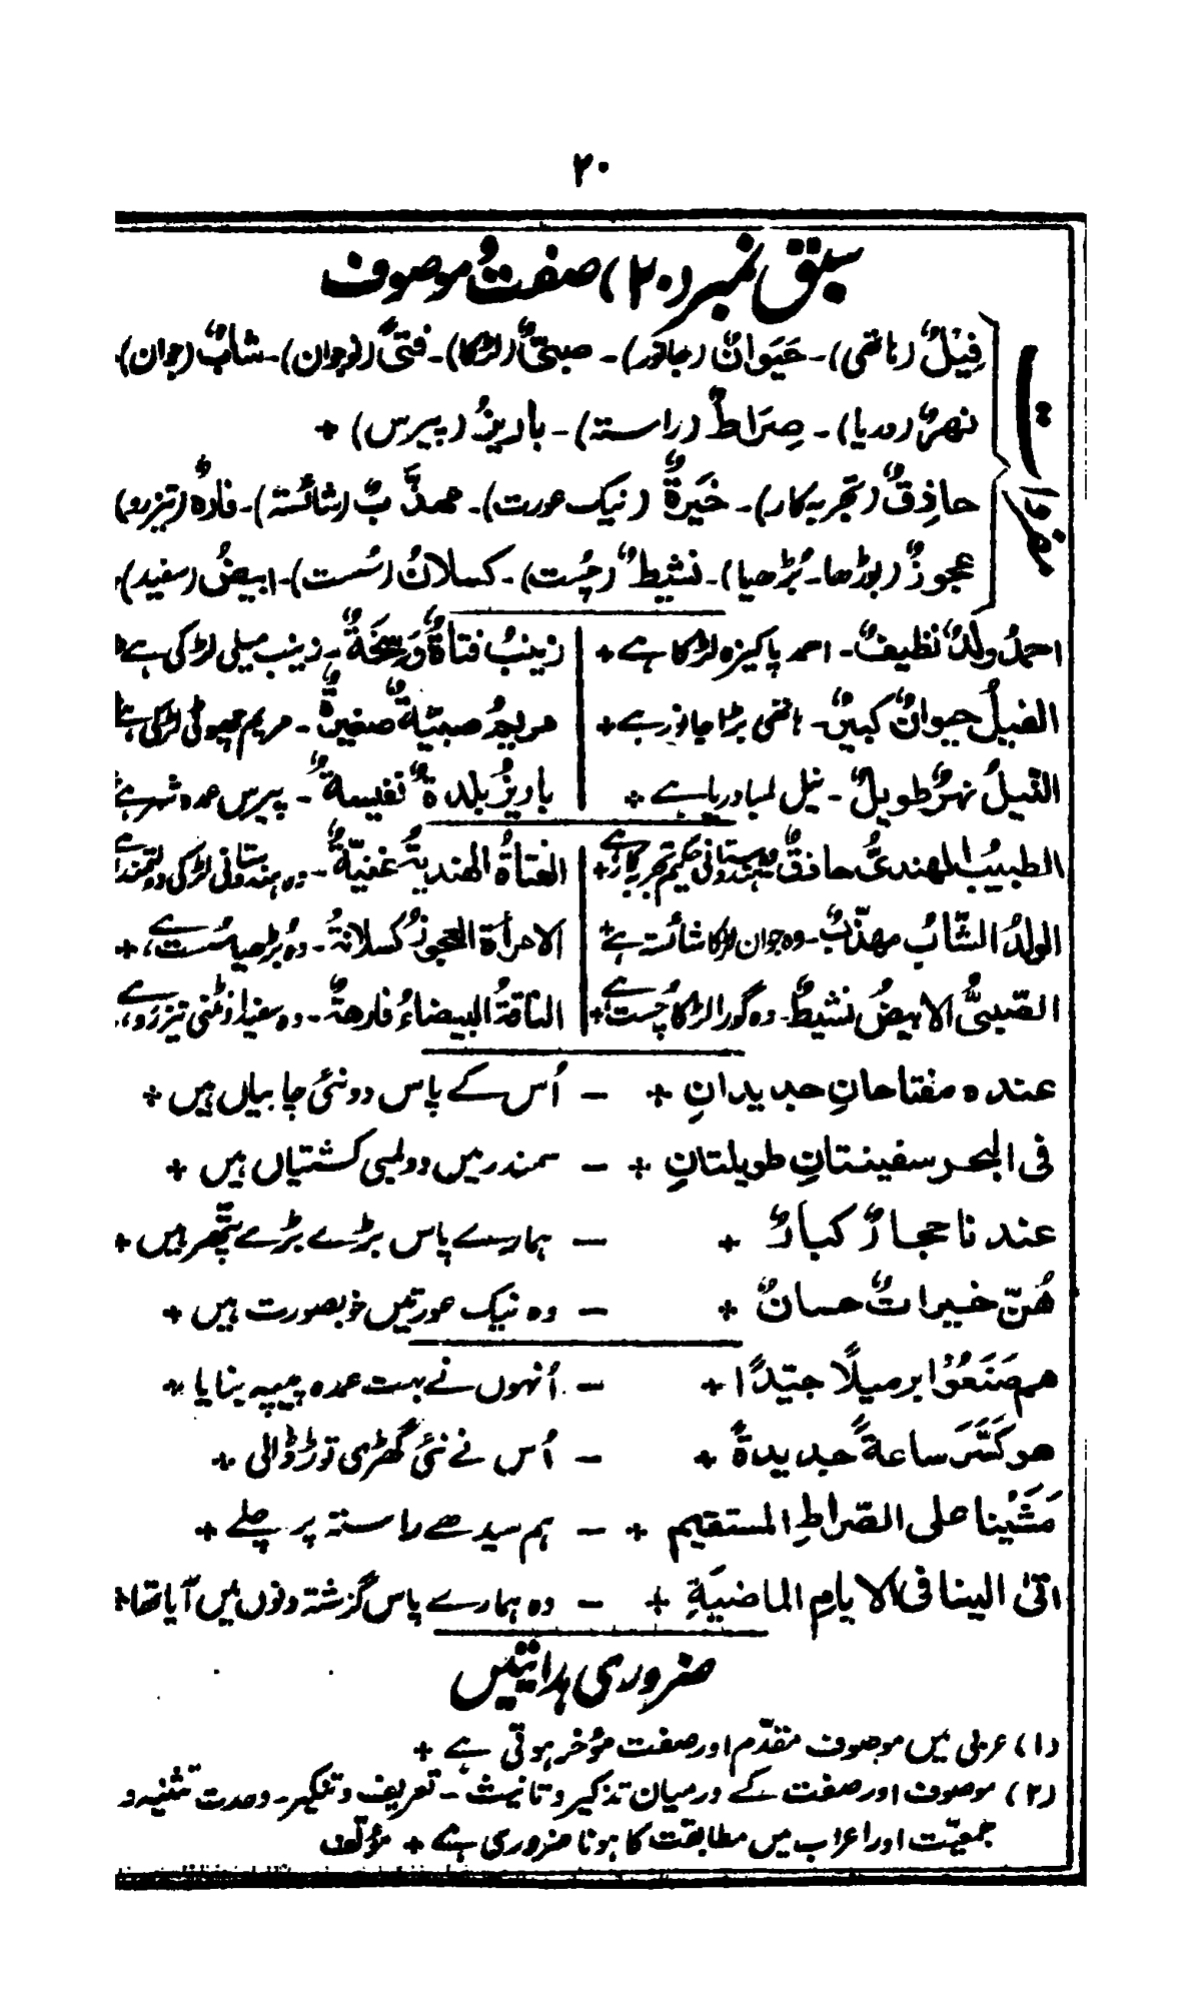 ۲۰
سبق نمبر (۲۰) صفت و موصوف
مفردات
فِیْلٌ (ہاتھی) - حَیَوانٌ (جانور) - صبیٌّ (لڑکا) - فتیً (نوجوان) - شابٌ (جوان)
نھرٌ (دریا) - صِرَاطٌ (راستہ) - باریزُ (پیرس) +
حاذِقٌ (تجربہ کار) - خَیرَۃٌ (نیک عورت) - مھذَّبٌ (شائستہ) - فارہٌ (تیزرو)
عجوزٌ (بوڑھا - بُڑھیا) - نشیطٌ (چُست) - کسلانُ (سُست) - ابیضُ (سفید)
احمدُ ولدٌ نظیفٌ - احمد پاکیزہ لڑکا ہے +
زینبُ فتاۃٌ وَسِخَۃٌ - زینب میلی لڑکی ہے
الفیلُ حیوانٌ کبیرٌ - ہاتھی بڑا جانور ہے +
مریمُ صبیّۃٌ صغیرۃٌ - مریم چھوٹی لڑکی ہے
النّیلُ نہرٌ طویلٌ - نیل لمبا دریا ہے +
باریزُ بلدۃٌ نفیسۃٌ - پیرس عمدہ شہر ہے
الطبیبُ الھندیُّ حاذقٌ - ہندوستانی حکیم تجربہ کار ہے +
الفتاۃُ الھندیۃُ غنیّۃٌ - وہ ہندوستانی لڑکی دولتمند ہے
الولدُ الشّابُ مھذّبٌ - وہ جوان لڑکا شائستہ ہے +
الامرأۃ العجوزُ کسلانۃٌ - وہ بُڑھیا سُست ہے، +
الصّبیُّ الابیضُ نشیطٌ - وہ گورا لڑکا چُست ہے +
الناقۃُ البیضاءُ فارھۃٌ - وہ سفید اونٹنی تیزرو ہے،
عندہ مفتاحانِ جدیدانِ + - اُس کے پاس دو نئی چابیاں ہیں +
فی البحر سفینتانِ طویلتانِ + - سمندر میں دو لمبی کشتیاں ہیں +
عندنا حجارٌ کبارٌ + - ہمارے پاس بڑے بڑے پتّھر ہیں +
ھُنّ خیراتٌ حسانٌ + - وہ نیک عورتیں خوبصورت ہیں +
ھم صَنَعُوْا برمیلًا جیّدًا + - اُنہوں نے بہت عمدہ پیپہ بنایا +
ھو کَسَّرَ ساعۃً جدیدۃً + - اُس نے نئی گھڑی توڑ ڈالی +
مَشَیْنا علی الصّراطِ المستقیم + - ہم سیدھے راستہ پر چلے +
اتیٰ الینا فی الایامِ الماضیَۃِ + - وہ ہمارے پاس گزشتہ دنوں میں آیا تھا +
ضروری ہدایتیں
(۱) عربی میں موصوف مقدّم اور صفت مؤخر ہوتی ہے +
(۲) موصوف اور صفت کے درمیان تذکیر و تانیث - تعریف و تنکیر - وحدت تثنیہ و
جمعیّت اور اعراب میں مطابقت کا ہونا ضروری ہے + مؤلّف